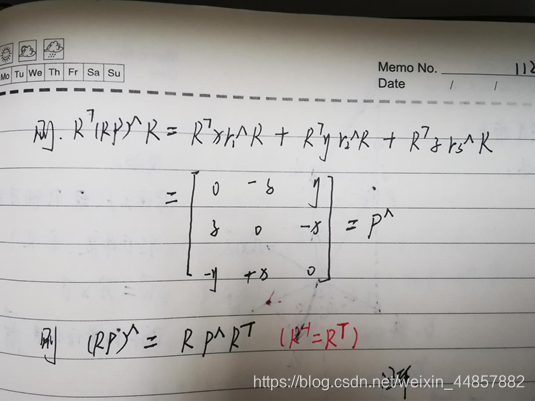 Memo No. 112
Mo Tu We Th Fr Sa Su
Date / /
则. Rᵀ(Rp)^R = Rᵀxr₁^R + Rᵀyr₂^R + Rᵀzr₃^R
= [ 0 -z y
z 0 -x
-y +x 0 ] = p^
则 (Rp)^ = R p^ Rᵀ (R⁻¹=Rᵀ)
证毕
https://blog.csdn.net/weixin_44857882